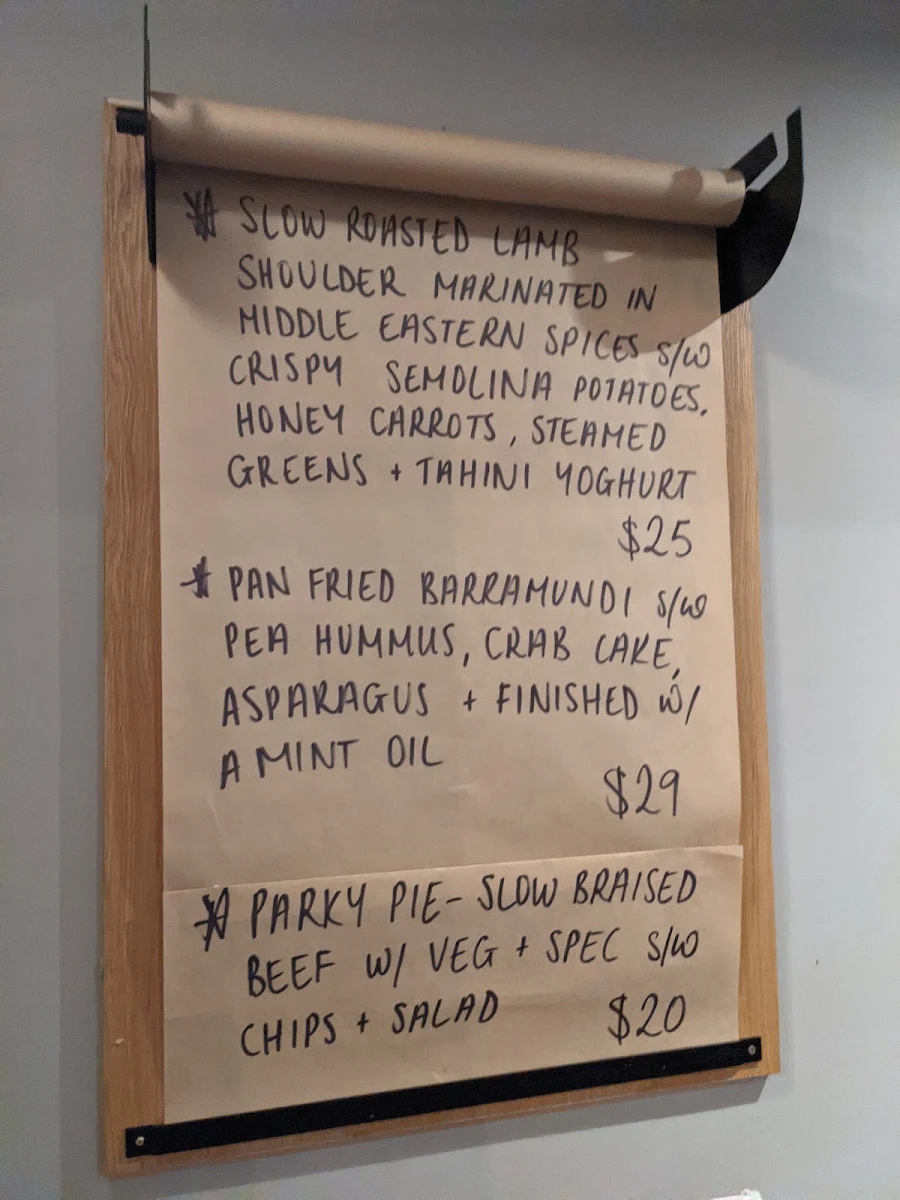 * SLOW ROASTED LAMB
SHOULDER MARINATED IN
MIDDLE EASTERN SPICES S/W
CRISPY SEMOLINA POTATOES,
HONEY CARROTS, STEAMED
GREENS + TAHINI YOGHURT
$25
* PAN FRIED BARRAMUNDI S/W
PEA HUMMUS, CRAB CAKE,
ASPARAGUS + FINISHED W/
A MINT OIL
$29
* PARKY PIE - SLOW BRAISED
BEEF W/ VEG + SPEC S/W
CHIPS + SALAD $20